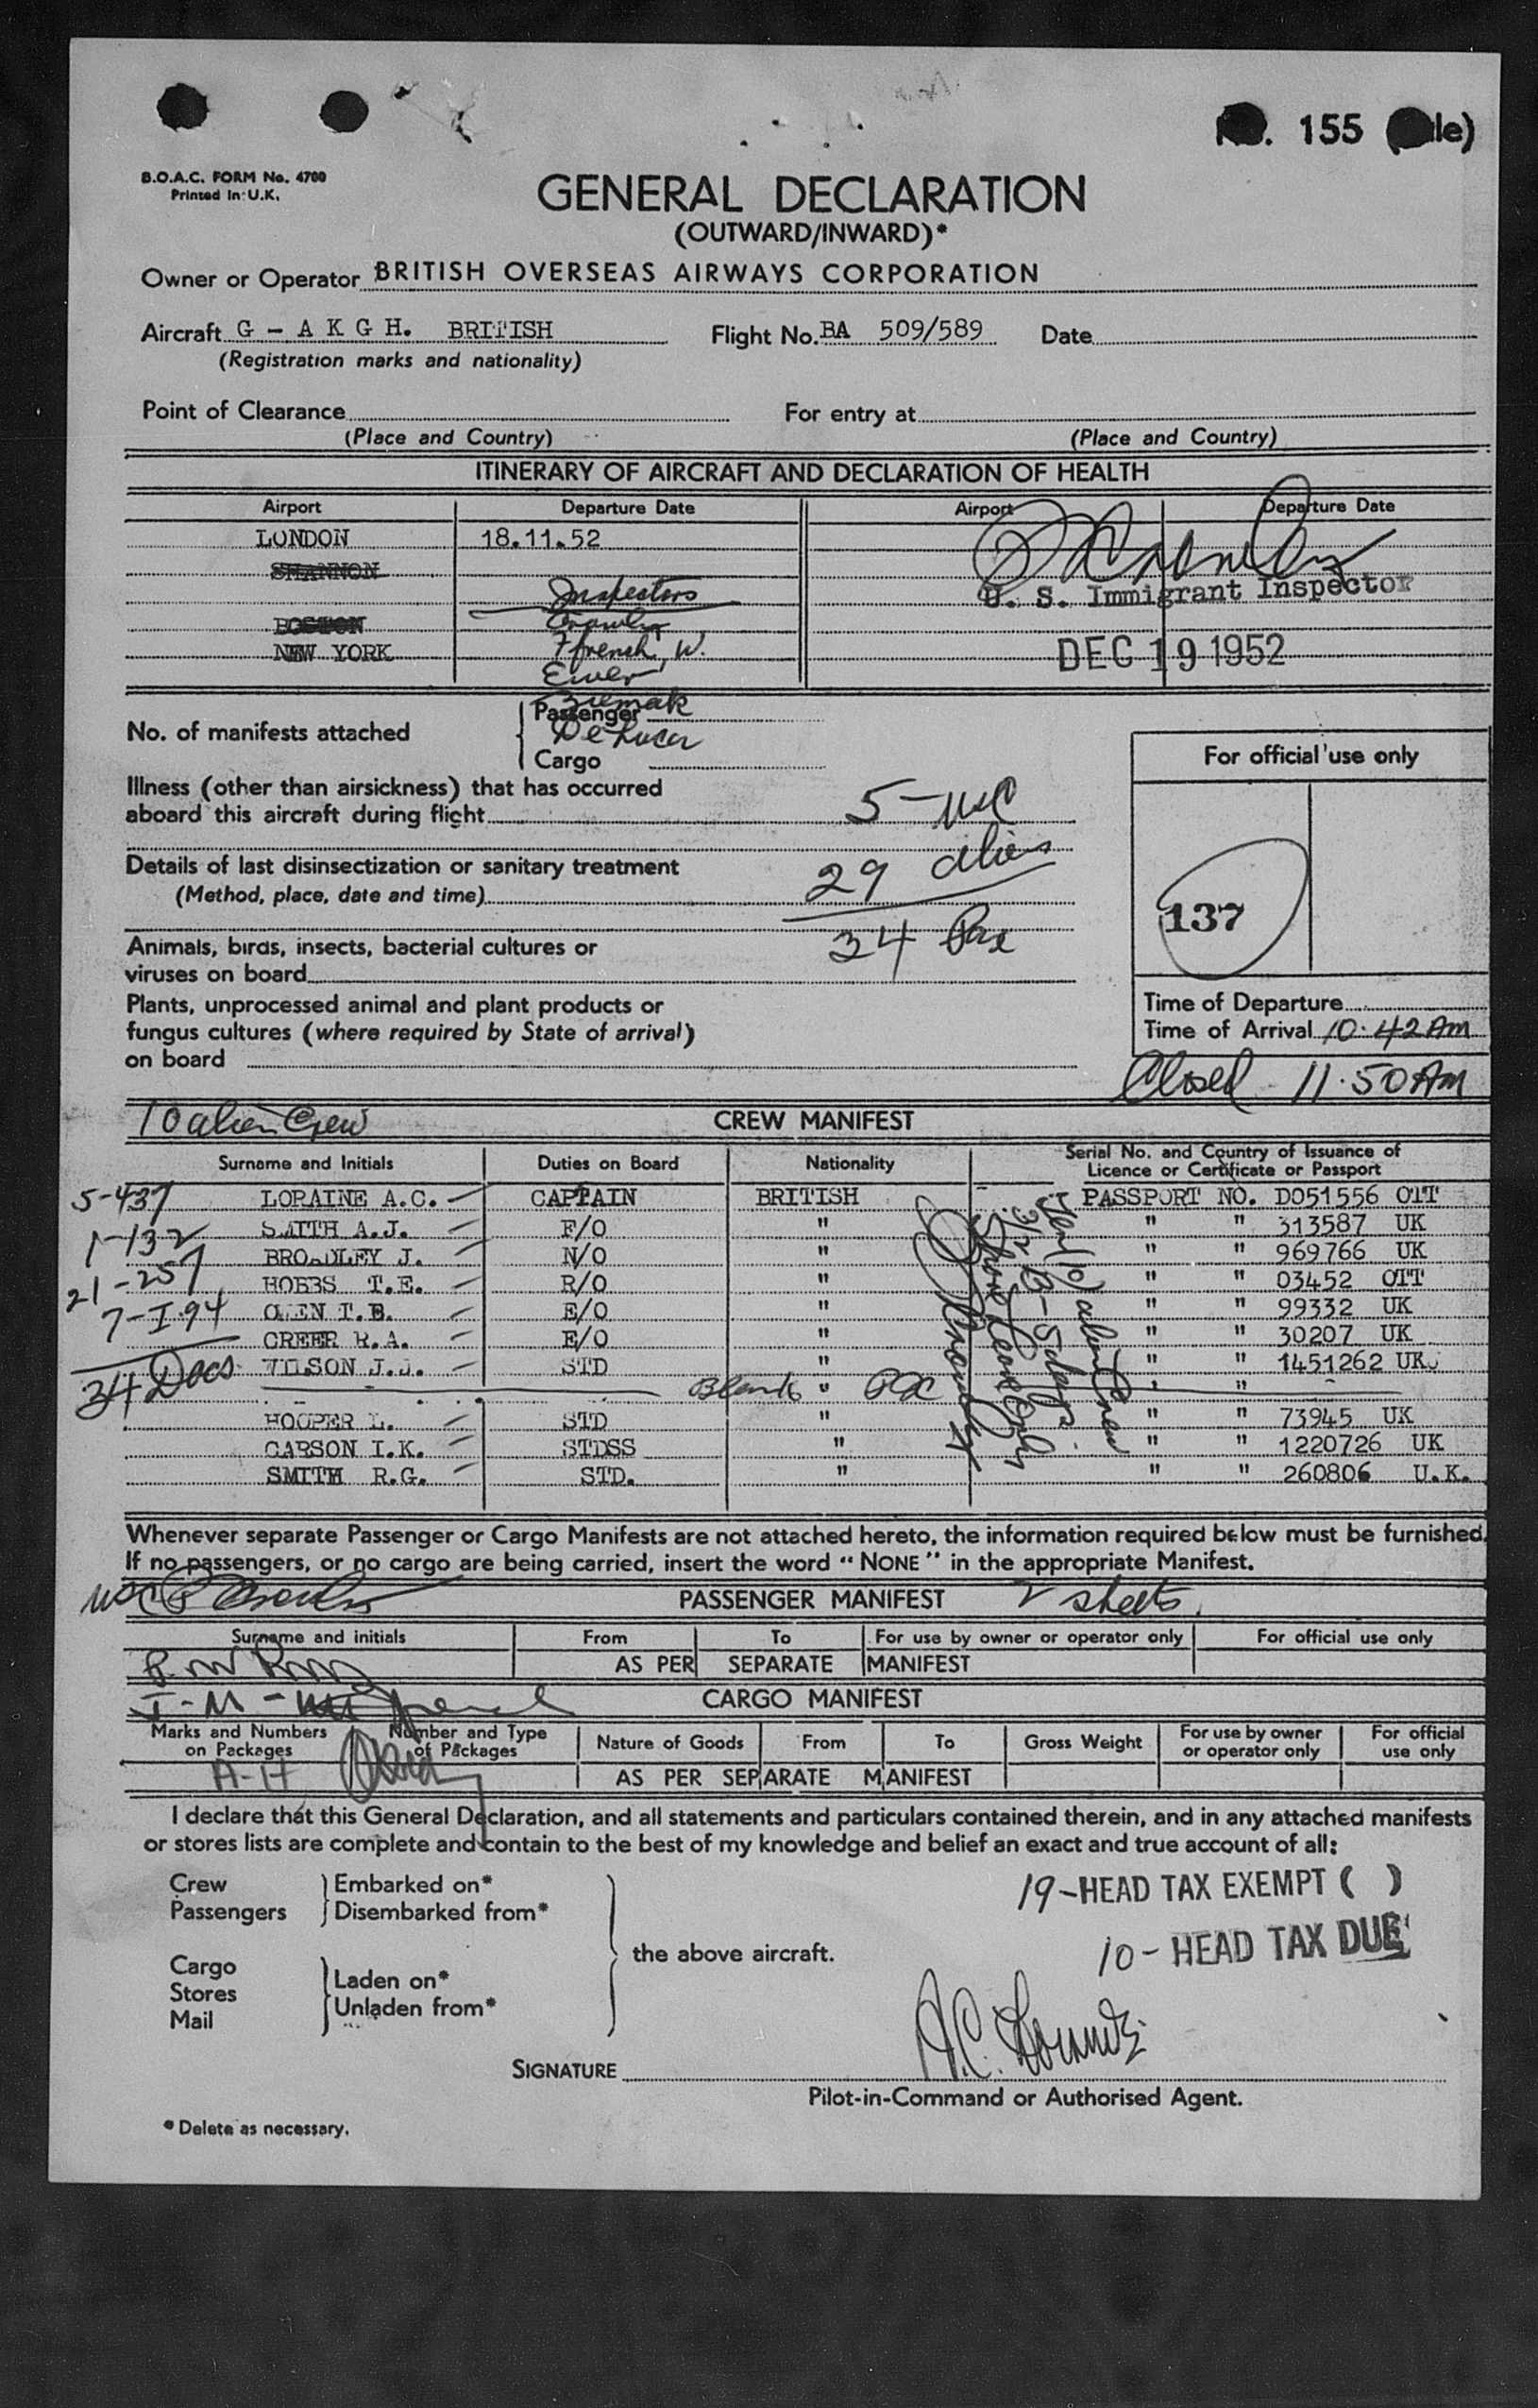 155
B.O.A.C. FORM No. 4700
Printed in U.K.
GENERAL DECLARATION
(OUTWARD/INWARD)*
Owner or Operator BRITISH OVERSEAS AIRWAYS CORPORATION
Aircraft G - A K G H. BRITISH Flight No. BA 509/589 Date
(Registration marks and nationality)
Point of Clearance For entry at
(Place and Country) (Place and Country)
ITINERARY OF AIRCRAFT AND DECLARATION OF HEALTH
Airport Departure Date Airport Departure Date
LONDON 18.11.52
SHANNON
Inspectors
U. S. Immigrant Inspector
BOSTON
NEW YORK Ffrench, W.
DEC 19 1952
Passenger
No. of manifests attached
De Luca
Cargo
For official use only
Illness (other than airsickness) that has occurred
aboard this aircraft during flight 5 - USC
Details of last disinsectization or sanitary treatment 29 aliens
(Method, place, date and time)
137
34 Pax
Animals, birds, insects, bacterial cultures or
viruses on board
Plants, unprocessed animal and plant products or
fungus cultures (where required by State of arrival)
on board
Time of Departure
Time of Arrival 10:42 AM
Closed 11.50 AM
10 alien Crew CREW MANIFEST
Surname and Initials Duties on Board Nationality Serial No. and Country of Issuance of
Licence or Certificate or Passport
5-437 LORAINE A.C. CAPTAIN BRITISH PASSPORT NO. D051556 OTT
1-132 SMITH A.J. F/O " " " 313587 UK
21-257 BROADLEY J. N/O " " " 969766 UK
HOBBS T.E. R/O " " " 03452 OTT
7-I.94 OWEN T.B. E/O " " " 99332 UK
GREER R.A. E/O " " " 30207 UK
34 Docs WILSON J.J. STD " " " 1451262 UK
Blank "
HOOPER L. STD " " " 73945 UK
CARSON I.K. STDSS " " " 1220726 UK
SMITH R.G. STD. " " " 260806 U.K.
Whenever separate Passenger or Cargo Manifests are not attached hereto, the information required below must be furnished.
If no passengers, or no cargo are being carried, insert the word "NONE" in the appropriate Manifest.
PASSENGER MANIFEST 2 sheets.
Surname and initials From To For use by owner or operator only For official use only
AS PER SEPARATE MANIFEST
CARGO MANIFEST
Marks and Numbers on Packages Number and Type of Packages Nature of Goods From To Gross Weight For use by owner or operator only For official use only
A-H AS PER SEPARATE MANIFEST
I declare that this General Declaration, and all statements and particulars contained therein, and in any attached manifests
or stores lists are complete and contain to the best of my knowledge and belief an exact and true account of all:
Crew Embarked on*
Passengers Disembarked from*
19-HEAD TAX EXEMPT ( )
10- HEAD TAX DUE
the above aircraft.
Cargo
Stores Laden on*
Mail Unladen from*
SIGNATURE
Pilot-in-Command or Authorised Agent.
* Delete as necessary.